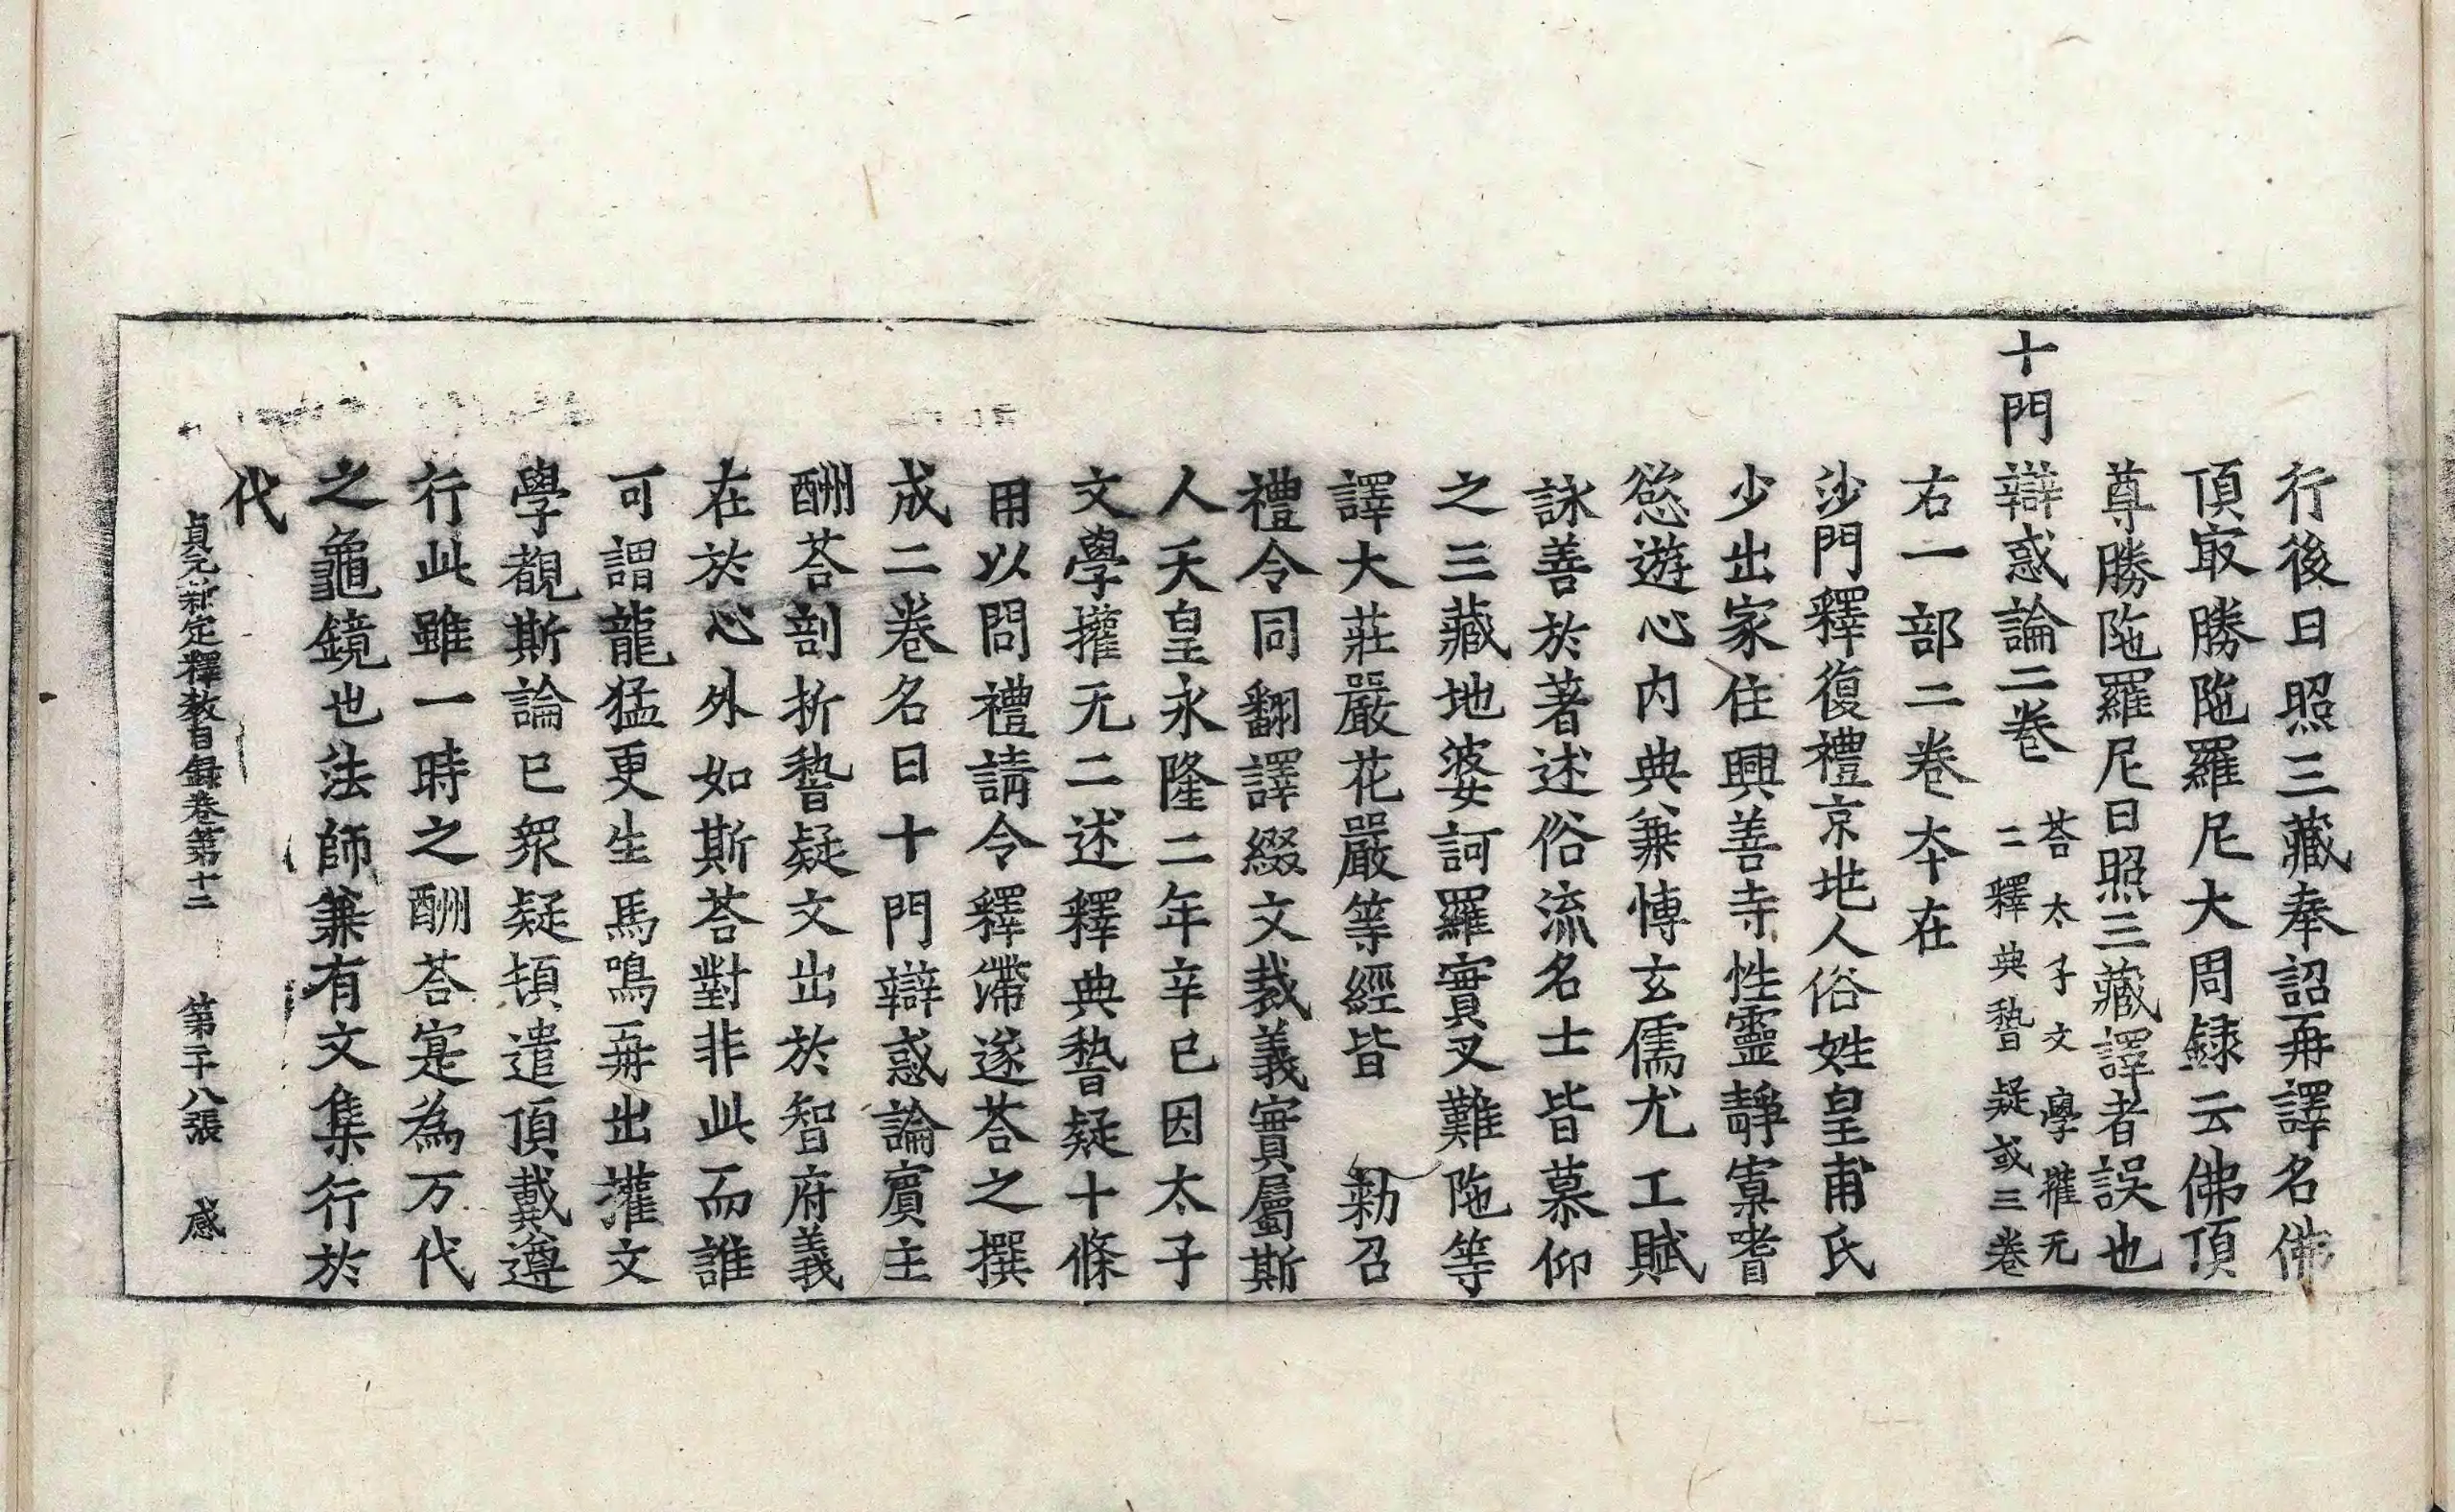 行後日照三藏奉詔再譯名佛
頂㝡勝陁羅尼大周録云佛頂
尊勝陁羅尼日照三藏譯者誤也
十門辯惑論二卷
荅太子文學權无
二釋典稽疑或三卷
右一部二卷本在
沙門釋復禮京地人俗姓皇甫氏
少出家住興善寺性靈靜寡嗜
慾遊心内典兼愽玄儒尤工賦
詠善於著述俗流名士皆慕仰
之三藏地婆訶羅實叉難陁等
譯大莊嚴花嚴等經皆 勑召
禮令同翻譯綴文裁義實屬斯
人天皇永隆二年辛巳因太子
文學權无二述釋典稽疑十條
用以問禮請令釋滯遂荅之撰
成二卷名曰十門辯惑論賔主
酬荅剖折稽疑文出於智府義
在於心外如斯荅對非此而誰
可謂龍猛更生馬鳴再出權文
學覩斯論已衆疑頓遣頂戴遵
行此雖一時之酬荅寔為万代
之龜鏡也法師兼有文集行於
代
貞元新定釋教目録卷第十二 第二十八張 感